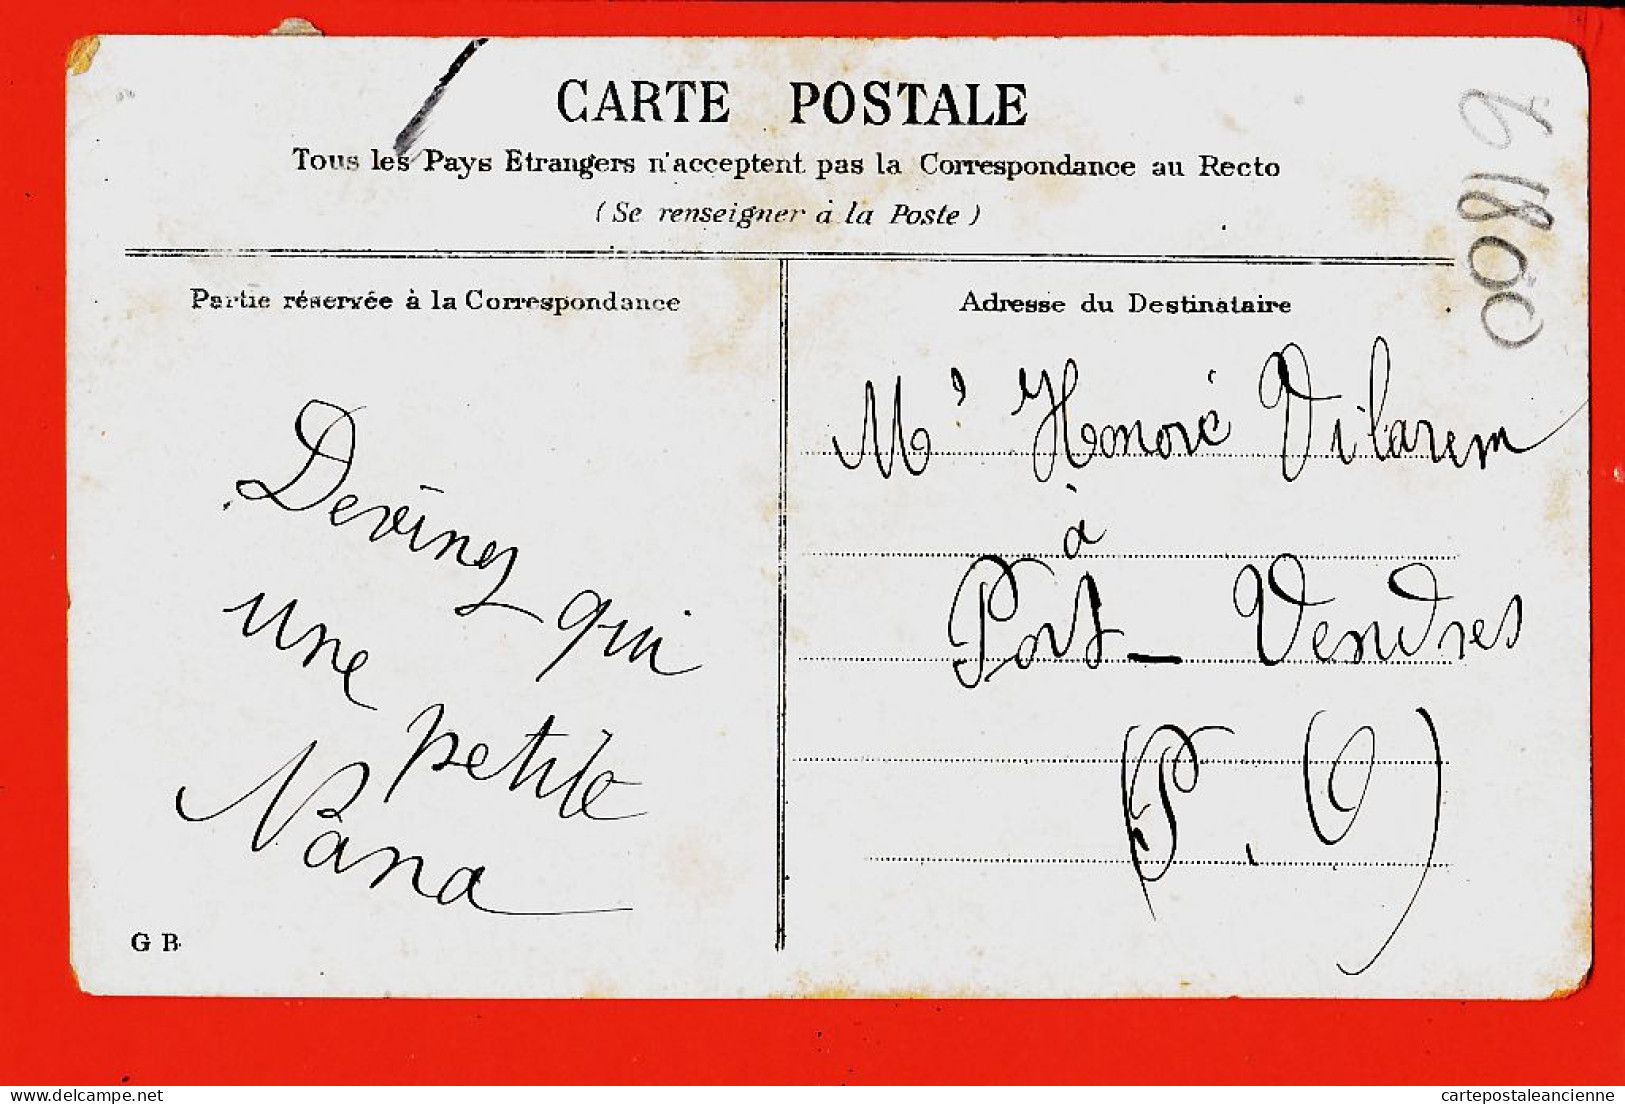 CARTE POSTALE
Tous les Pays Etrangers n'acceptent pas la Correspondance au Recto
(Se renseigner à la Poste)
Partie réservée à la Correspondance
Devinez qui
une petite
Nana
G B
Adresse du Destinataire
Mr Honoré Vilarem
à
Port-Vendres
(P. O)
www.delcampe.net
cartepostaleancienne